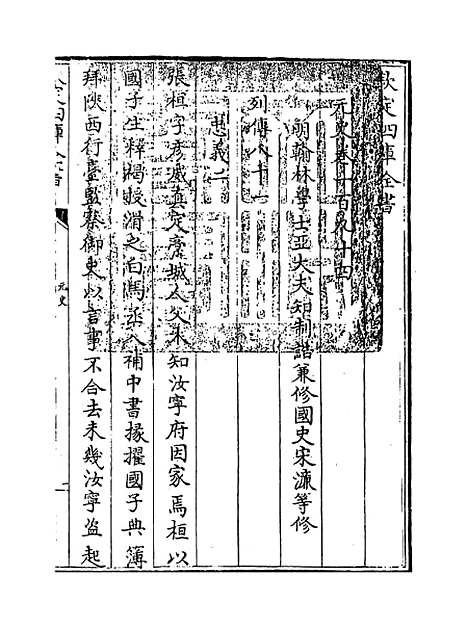 欽定四庫全書
元史卷一百九十四
明翰林學士亞大夫知制誥兼修國史宋濂等修
列傳八十一
忠義二
張桓字彥威真定藁城人父木知汝寧府因家焉桓以
國子生釋褐授滑之白馬丞入補中書掾擢國子典簿
拜陝西行臺監察御史以言事不合去未幾汝寧盜起
元史